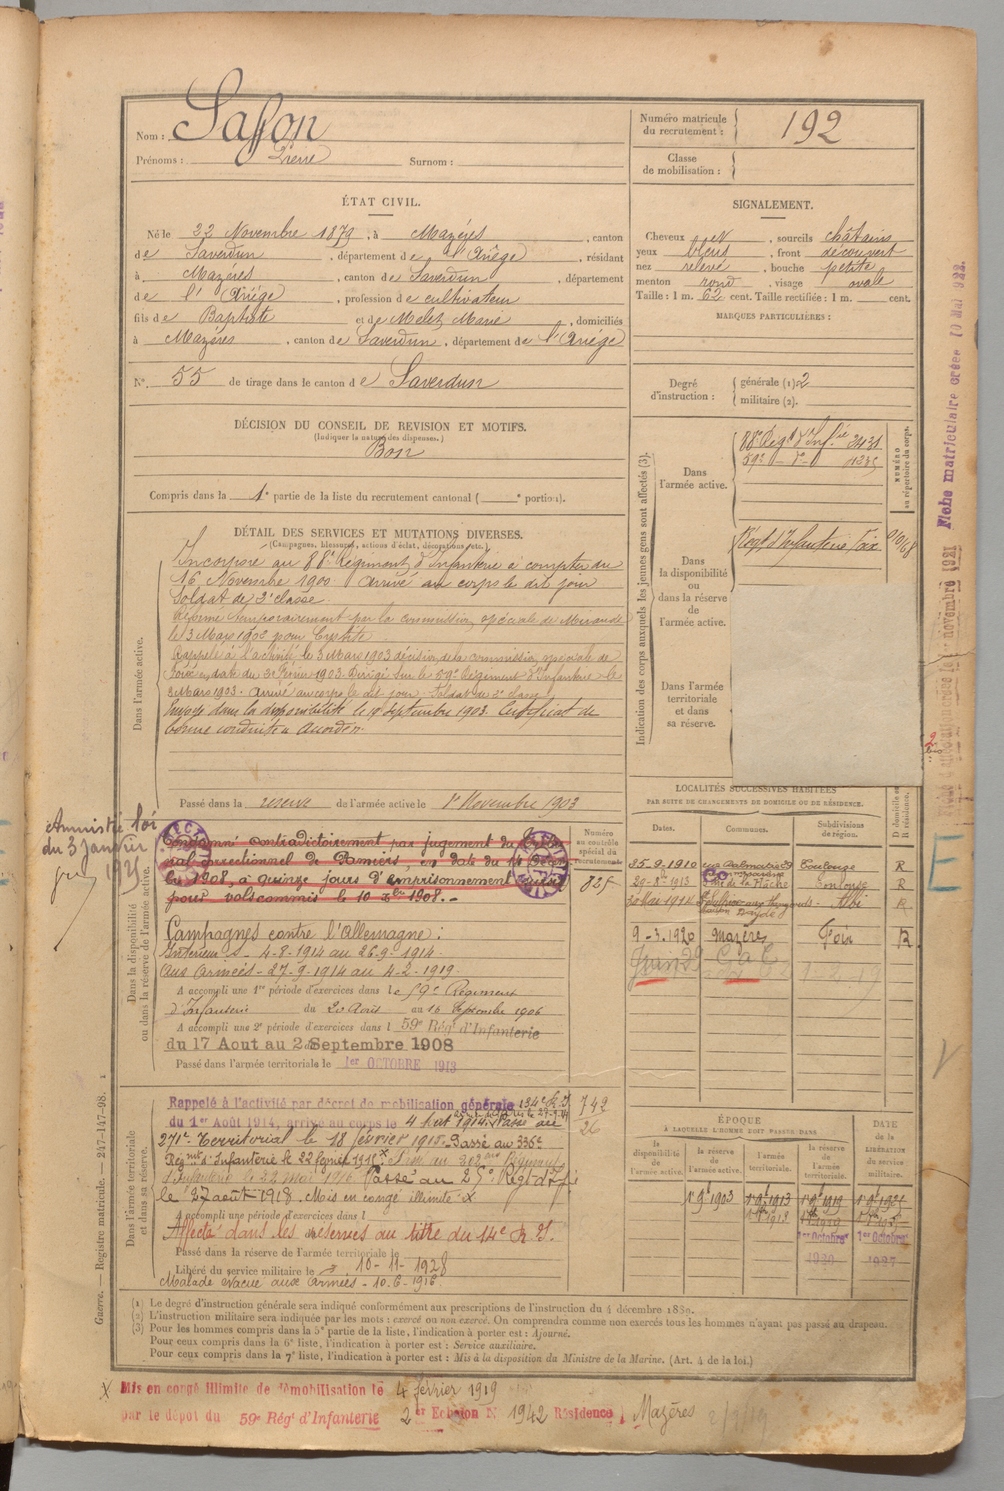 Nom : Saffon
Prénoms : Pierre Surnom :
Numéro matricule du recrutement : 192
Classe de mobilisation :
ÉTAT CIVIL.
Né le 22 Novembre 1879, à Mazères, canton
de Saverdun, département de l'Ariège, résidant
à Mazères, canton de Saverdun, département
de l'Ariège, profession de cultivateur
fils de Baptiste et de Melet Marie, domiciliés
à Mazères, canton de Saverdun, département de l'Ariège
N° 55 de tirage dans le canton de Saverdun
SIGNALEMENT.
Cheveux et, sourcils châtains
yeux bleus, front découvert
nez relevé, bouche petite
menton rond, visage ovale
Taille : 1 m. 62 cent. Taille rectifiée : 1 m. cent.
MARQUES PARTICULIÈRES :
Degré d'instruction : générale (1) 2
militaire (2).
DÉCISION DU CONSEIL DE REVISION ET MOTIFS.
(Indiquer la nature des dispenses.)
Bon
Compris dans la 1e partie de la liste du recrutement cantonal ( e portion).
Indication des corps auxquels les jeunes gens sont affectés (3).
Dans l'armée active.
88e Régt d'Infie 2431
59e — do — 4235
NUMÉRO au répertoire du corps.
Dans la disponibilité ou dans la réserve de l'armée active.
Régt d'Infanterie Foix
Dans l'armée territoriale et dans sa réserve.
DÉTAIL DES SERVICES ET MUTATIONS DIVERSES.
(Campagnes, blessures, actions d'éclat, décorations, etc.)
Dans l'armée active.
Incorporé au 88e Régiment d'Infanterie à compter du
16 Novembre 1900 arrivé au corps le dit jour
Soldat de 2e classe.
Réformé temporairement par la commission spéciale de Mirande
le 3 Mars 1902 pour
Rappelé à l'activité le 3 Mars 1903 décision de la commission spéciale de
Foix en date du Février 1903. Dirigé sur le 59e Régiment d'Infanterie le
3 Mars 1903. Arrivé au corps le dit jour, Soldat de 2e classe
Envoyé dans la disponibilité le 19 Septembre 1903. Certificat de
bonne conduite « Accordé »
Passé dans la réserve de l'armée active le 1er Novembre 1903
Dans la disponibilité ou dans la réserve de l'armée active.
Amnistié loi
du 3 Janvier
1925
Condamné contradictoirement par jugement du
correctionnel de Pamiers en date du
1908, à quinze jours d'emprisonnement
pour vols commis le 10 1908.
Numéro au contrôle spécial du recrutement
825
Campagnes contre l'Allemagne :
Intérieur - 4-8-1914 au 26-9-1914
Aux armées - 27-9-1914 au 4-2-1919.
A accompli une 1re période d'exercices dans le 59e Régiment
d'Infanterie du 20 Août au 16 Septembre 1906
A accompli une 2e période d'exercices dans l 59e Régt d'Infanterie
du 17 Aout au 2 Septembre 1908
Passé dans l'armée territoriale le 1er OCTOBRE 1913
LOCALITÉS SUCCESSIVES HABITÉES
PAR SUITE DE CHANGEMENTS DE DOMICILE OU DE RÉSIDENCE.
Dates. Communes. Subdivisions de région. D domicile ou R résidence.
25-9-1910 Toulouse R
29-8-1913 Toulouse R
20 Mai 1914 Albi R
9-3-1920 Mazères Foix R
Dans l'armée territoriale et dans sa réserve.
Rappelé à l'activité par décret de mobilisation générale 134e R.I
du 1er Août 1914, arrivé au corps le 4 Aout 1914. Passé au
742
26
271e Territorial le 18 février 1915. Passé au 336e
Régmt d'Infanterie le 22 février 1915 x Passé au Régiment
d'Infanterie le 22 mai 1916 Passé au 25e Régt d'Infie
le 27 août 1918. Mis en congé illimité x
A accompli une période d'exercices dans l
Affecté dans les réserves au titre du 14e R.I.
Passé dans la réserve de l'armée territoriale le
Libéré du service militaire le 10-11-1928
Malade évacué aux armées - 10-6-1916.
ÉPOQUE
A LAQUELLE L'HOMME DOIT PASSER DANS
la disponibilité de l'armée active. la réserve de l'armée active. l'armée territoriale. la réserve de l'armée territoriale. DATE de la LIBÉRATION du service militaire.
1er 9bre 1903 1er 9bre 1913 1er 9bre 1919 1er 9bre 1925
1er Octobre 1er Octobre
(1) Le degré d'instruction générale sera indiqué conformément aux prescriptions de l'instruction du 4 décembre 1889.
(2) L'instruction militaire sera indiquée par les mots : exercé ou non exercé. On comprendra comme non exercés tous les hommes n'ayant pas passé au drapeau.
(3) Pour les hommes compris dans la 5e partie de la liste, l'indication à porter est : Ajourné.
Pour ceux compris dans la 6e liste, l'indication à porter est : Service auxiliaire.
Pour ceux compris dans la 7e liste, l'indication à porter est : Mis à la disposition du Ministre de la Marine. (Art. 4 de la loi.)
X Mis en congé illimité de démobilisation le 4 février 1919
par le dépôt du 59e Régt d'Infanterie 2er Echelon N 1942 Résidence à Mazères
Guerre. — Registre matricule. — 247-147-98.
Fiche matriculaire créée 10 Mai 922.